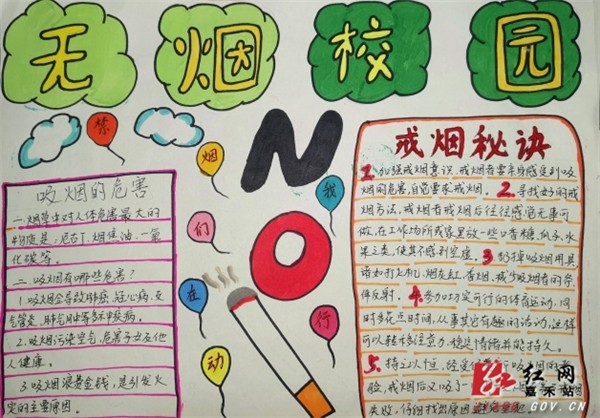 无烟校园
禁烟我们在行动
NO
吸烟的危害
一.烟草中对人体危害最大的
物质是:尼古丁、烟焦油、一氧
化碳等。
二.吸烟有哪些危害?
1.吸烟会导致肺癌、冠心病、支
气管炎、肺气肿等多种疾病。
2.吸烟污染空气,危害子女及他
人健康。
3.吸烟浪费金钱,是引发火
灾的主要原因。
戒烟秘诀
1.加强戒烟意识,戒烟者要亲身感受到吸
烟间危害,自觉要求戒烟。2.寻找好的戒
烟方法,戒烟者戒烟后往往感觉无事可
做,在工作场所或家里放一些口香糖、瓜子、水
果之类,使其不感到空虚。3.扔掉吸烟用具,
诸如打火机、烟灰缸、香烟,减少吸烟者的条
件反射。4.参加切实可行的体育运动,同
时多花点时间,从事其它有趣的活动,这样
可以转移注意力,稳定情绪并能持久。
5.持之以恒,经受住
吸烟的
验,戒烟后又吸了
失败,仔细找出原因
红网
嘉禾站
GOV.CN